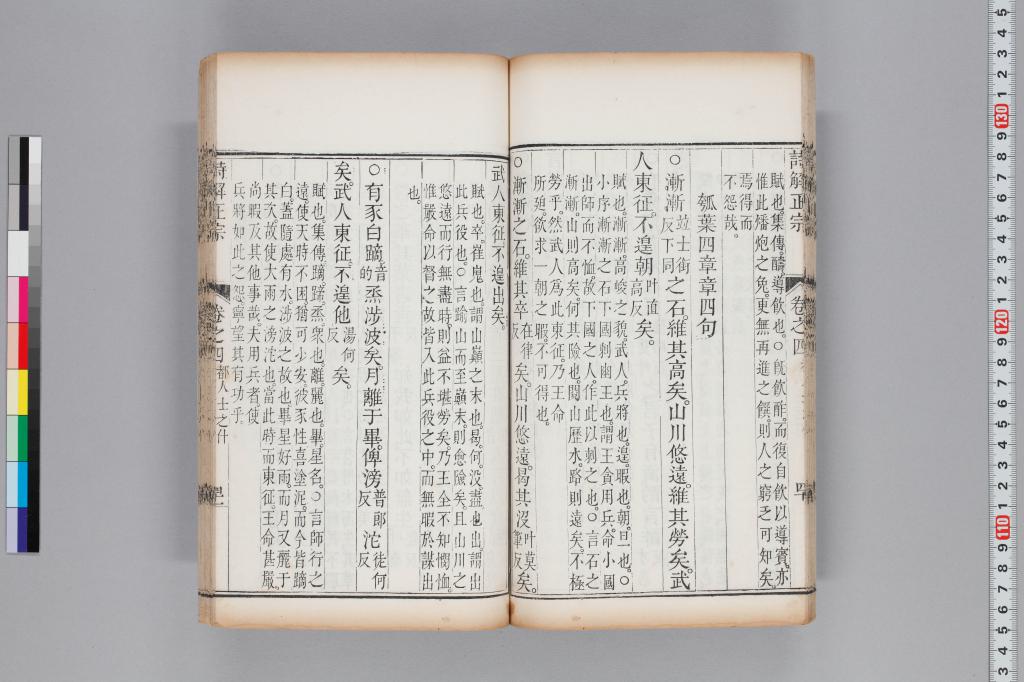 詩解正宗
卷之四
賦也。集傳醻。導飲也。○旣飲酢。而復自飲以導賓。亦
惟此燔炮之兔。更無再進之饌。則人之窮乏可知矣。
焉得而
不怨哉。
瓠葉四章章四句
○漸漸竝士銜反下同之石。維其高矣。山川悠遠。維其勞矣。武
人東征。不遑朝叶直高反矣。
賦也。漸漸。高峻之貌。武人。兵將也。遑。暇也。朝。旦也。○
小序漸漸之石。下國刺幽王也。謂王貪用兵。命小國
出師而不恤。故下國之人。作此以刺之也。○言石之
漸漸。山則高矣。何其險也。閱山歷水。路則遠矣。不極
勞乎。然武人爲此東征。乃王命
所廹。欲求一朝之暇。不可得也。
○漸漸之石。維其卒在律反矣。山川悠遠。曷其沒叶莫筆反矣。
武人東征。不遑出矣。
賦也。卒。崔嵬也。謂山巓之末也。曷。何。没。盡也。出。謂出
此兵役也。○言踰山而至巓末。則愈險矣。且山川之
悠遠而行無盡時。則益不堪勞矣。乃王全不知憫恤。
惟嚴命以督之。故皆入此兵役之中。而無暇於謀出
也。
○有豕白蹢音的烝涉波矣。月離于畢。俾滂普郞反沱徒何反
矣。武人東征。不遑他湯何反矣。
賦也。集傳蹢。蹄。烝。衆也。離。麗也。畢。星名。○言師行之
遠。使天時不困。猶可少安。彼豕性喜塗泥。而今皆蹢
白。蓋隨處有水。涉波之故也。畢星好雨。而月又麗于
其次。故使大雨之滂沱也。當此時而東征。王命甚嚴。
尚暇及其他事哉。夫用兵者。使
兵將如此之怨。寧望其有功乎。
詩解正宗
卷之四
都人士之什